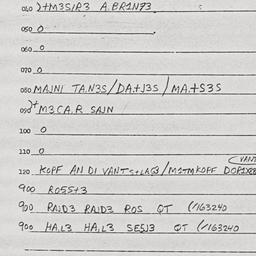 040 )+M3S/R3 A.BR1N93
050 0
060 0
070 0
080 MAJNI TA.N3S/DA.+J3S/MA.+S3S
090 )+ M3CA.R SAJN
100 0
110 0
(VANT
120 KOPF AN DI VANTS+LAG3/M2TMKOPF
900 ROSS+3
900 RAJD3 RAJD3 ROS QT (/163240
900 HA.L3 HA.L3 SESJ3 QT (/163240